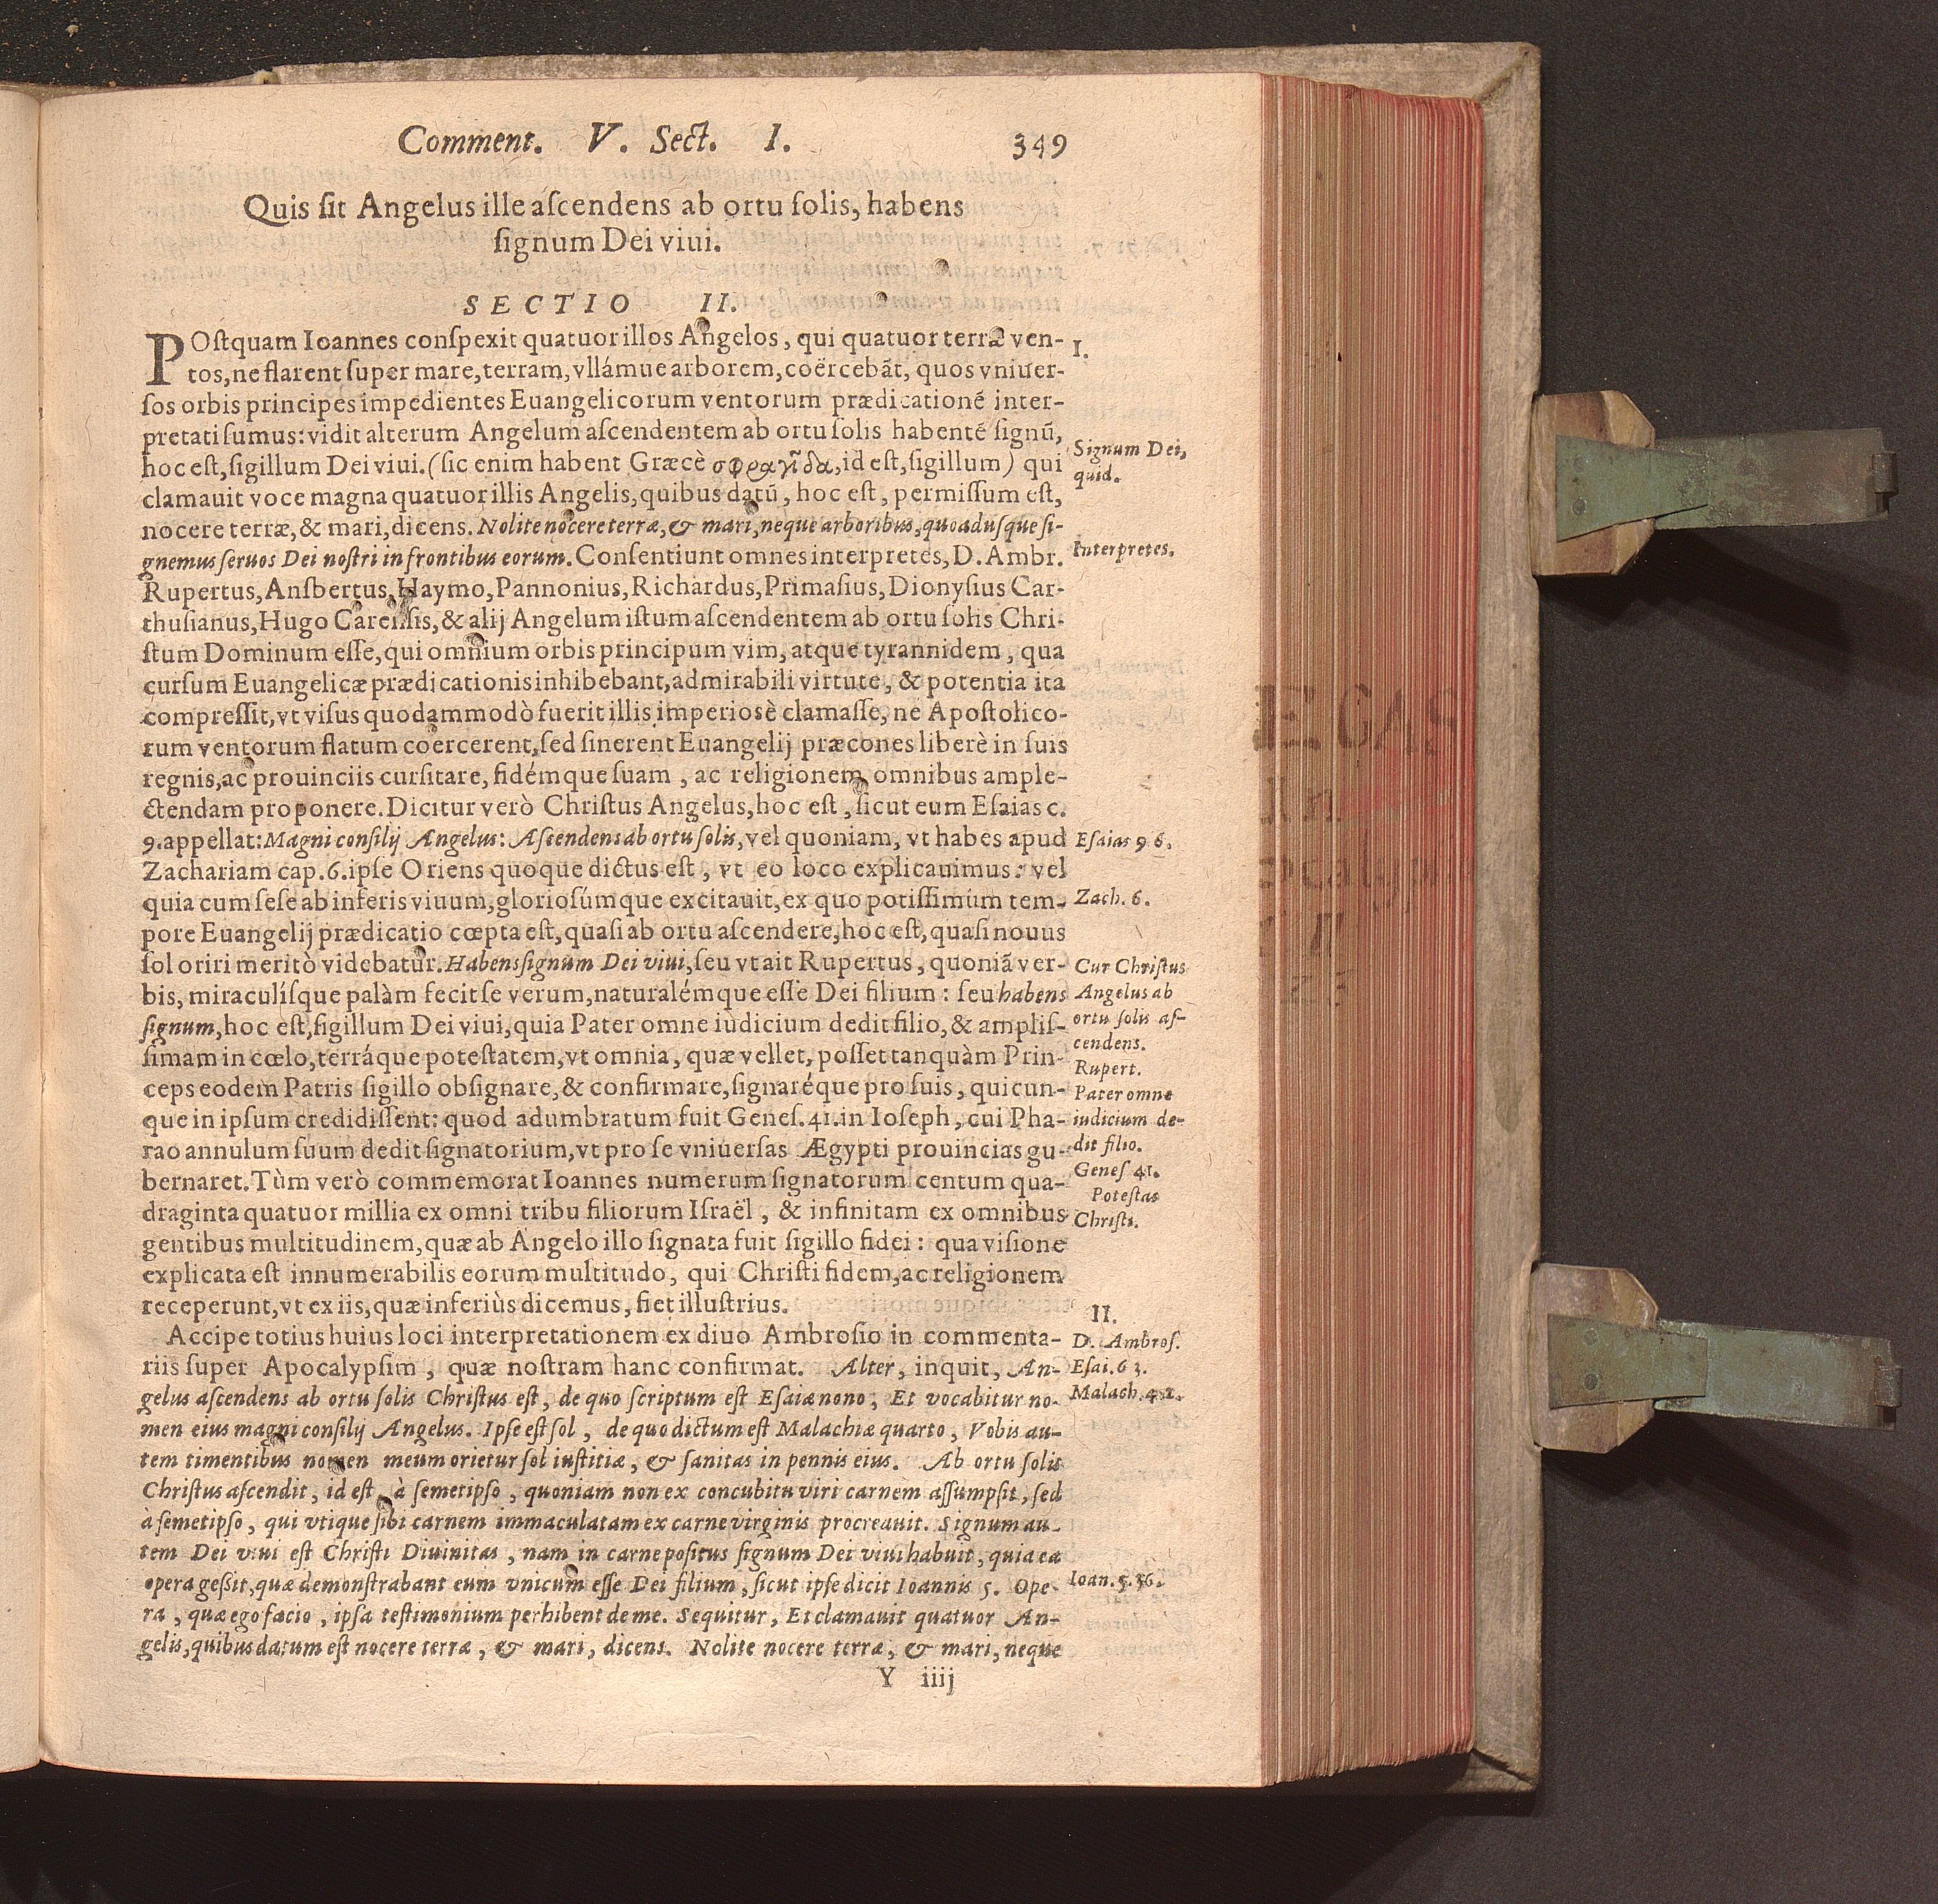 Comment. V. Sect. I. 349
Quis ſit Angelus ille aſcendens ab ortu ſolis, habens
ſignum Dei viui.
SECTIO II.
POſtquam Ioannes conſpexit quatuor illos Angelos, qui quatuor terræ ven-
tos, ne flarent ſuper mare, terram, vllámue arborem, coërcebãt, quos vniuer-
ſos orbis principes impedientes Euangelicorum ventorum prædicationẽ inter-
pretati ſumus: vidit alterum Angelum aſcendentem ab ortu ſolis habentẽ ſignũ,
hoc eſt, ſigillum Dei viui. (ſic enim habent Græcè σφραγῖδα, id eſt, ſigillum) qui
clamauit voce magna quatuor illis Angelis, quibus datũ, hoc eſt, permiſſum eſt,
nocere terræ, & mari, dicens. Nolite nocere terræ, & mari, neque arboribus, quoaduſque ſi-
gnemus ſeruos Dei noſtri in frontibus eorum. Conſentiunt omnes interpretes, D. Ambr.
Rupertus, Anſbertus, Haymo, Pannonius, Richardus, Primaſius, Dionyſius Car-
thuſianus, Hugo Carenſis, & alij Angelum iſtum aſcendentem ab ortu ſolis Chri-
ſtum Dominum eſſe, qui omnium orbis principum vim, atque tyrannidem, qua
curſum Euangelicæ prædicationis inhibebant, admirabili virtute, & potentia ita
compreſſit, vt viſus quodammodò fuerit illis imperiosè clamaſſe, ne Apoſtolico-
rum ventorum flatum coercerent, ſed ſinerent Euangelij præcones liberè in ſuis
regnis, ac prouinciis curſitare, fidémque ſuam, ac religionem omnibus ample-
ctendam proponere. Dicitur verò Chriſtus Angelus, hoc eſt, ſicut eum Eſaias c.
9. appellat: Magni conſilij Angelus: Aſcendens ab ortu ſolis, vel quoniam, vt habes apud
Zachariam cap. 6. ipſe Oriens quoque dictus eſt, vt eo loco explicauimus: vel
quia cum ſeſe ab inferis viuum, glorioſúmque excitauit, ex quo potiſſimùm tem-
pore Euangelij prædicatio cœpta eſt, quaſi ab ortu aſcendere, hoc eſt, quaſi nouus
ſol oriri meritò videbatur. Habens ſignum Dei viui, ſeu vt ait Rupertus, quoniã ver-
bis, miraculíſque palàm fecit ſe verum, naturalémque eſſe Dei filium: ſeu habens
ſignum, hoc eſt, ſigillum Dei viui, quia Pater omne iudicium dedit filio, & ampliſ-
ſimam in cœlo, terráque poteſtatem, vt omnia, quæ vellet, poſſet tanquàm Prin-
ceps eodem Patris ſigillo obſignare, & confirmare, ſignaréque pro ſuis, quicun-
que in ipſum credidiſſent: quod adumbratum fuit Geneſ. 41. in Ioſeph, cui Pha-
rao annulum ſuum dedit ſignatorium, vt pro ſe vniuerſas Ægypti prouincias gu-
bernaret. Tùm verò commemorat Ioannes numerum ſignatorum centum qua-
draginta quatuor millia ex omni tribu filiorum Iſraël, & infinitam ex omnibus
gentibus multitudinem, quæ ab Angelo illo ſignata fuit ſigillo fidei: qua viſione
explicata eſt innumerabilis eorum multitudo, qui Chriſti fidem, ac religionem
receperunt, vt ex iis, quæ inferiùs dicemus, fiet illuſtrius.
Accipe totius huius loci interpretationem ex diuo Ambroſio in commenta-
riis ſuper Apocalypſim, quæ noſtram hanc confirmat. Alter, inquit, An-
gelus aſcendens ab ortu ſolis Chriſtus eſt, de quo ſcriptum eſt Eſaiæ nono; Et vocabitur no-
men eius magni conſilij Angelus. Ipſe eſt ſol, de quo dictum eſt Malachiæ quarto, Vobis au-
tem timentibus nomen meum orietur ſol iuſtitiæ, & ſanitas in pennis eius. Ab ortu ſolis
Chriſtus aſcendit, id eſt, à ſemetipſo, quoniam non ex concubitu viri carnem aſſumpſit, ſed
à ſemetipſo, qui vtique ſibi carnem immaculatam ex carne virginis procreauit. Signum au-
tem Dei viui eſt Chriſti Diuinitas, nam in carne poſitus ſignum Dei viui habuit, quia ea
opera geſsit, quæ demonſtrabant eum vnicum eſſe Dei filium, ſicut ipſe dicit Ioannis 5. Ope-
ra, quæ ego facio, ipſa teſtimonium perhibent de me. Sequitur, Et clamauit quatuor An-
gelis, quibus datum eſt nocere terræ, & mari, dicens. Nolite nocere terræ, & mari, neque
Y iiij
I.
Signum Dei,
quid.
Interpretes.
Eſaias 9 6.
Zach. 6.
Cur Chriſtus
Angelus ab
ortu ſolis aſ-
cendens.
Rupert.
Pater omne
iudicium de-
dit filio.
Geneſ 41.
Poteſtas
Chriſti.
II.
D. Ambroſ.
Eſai. 63.
Malach. 4.2.
Ioan. 5.36.